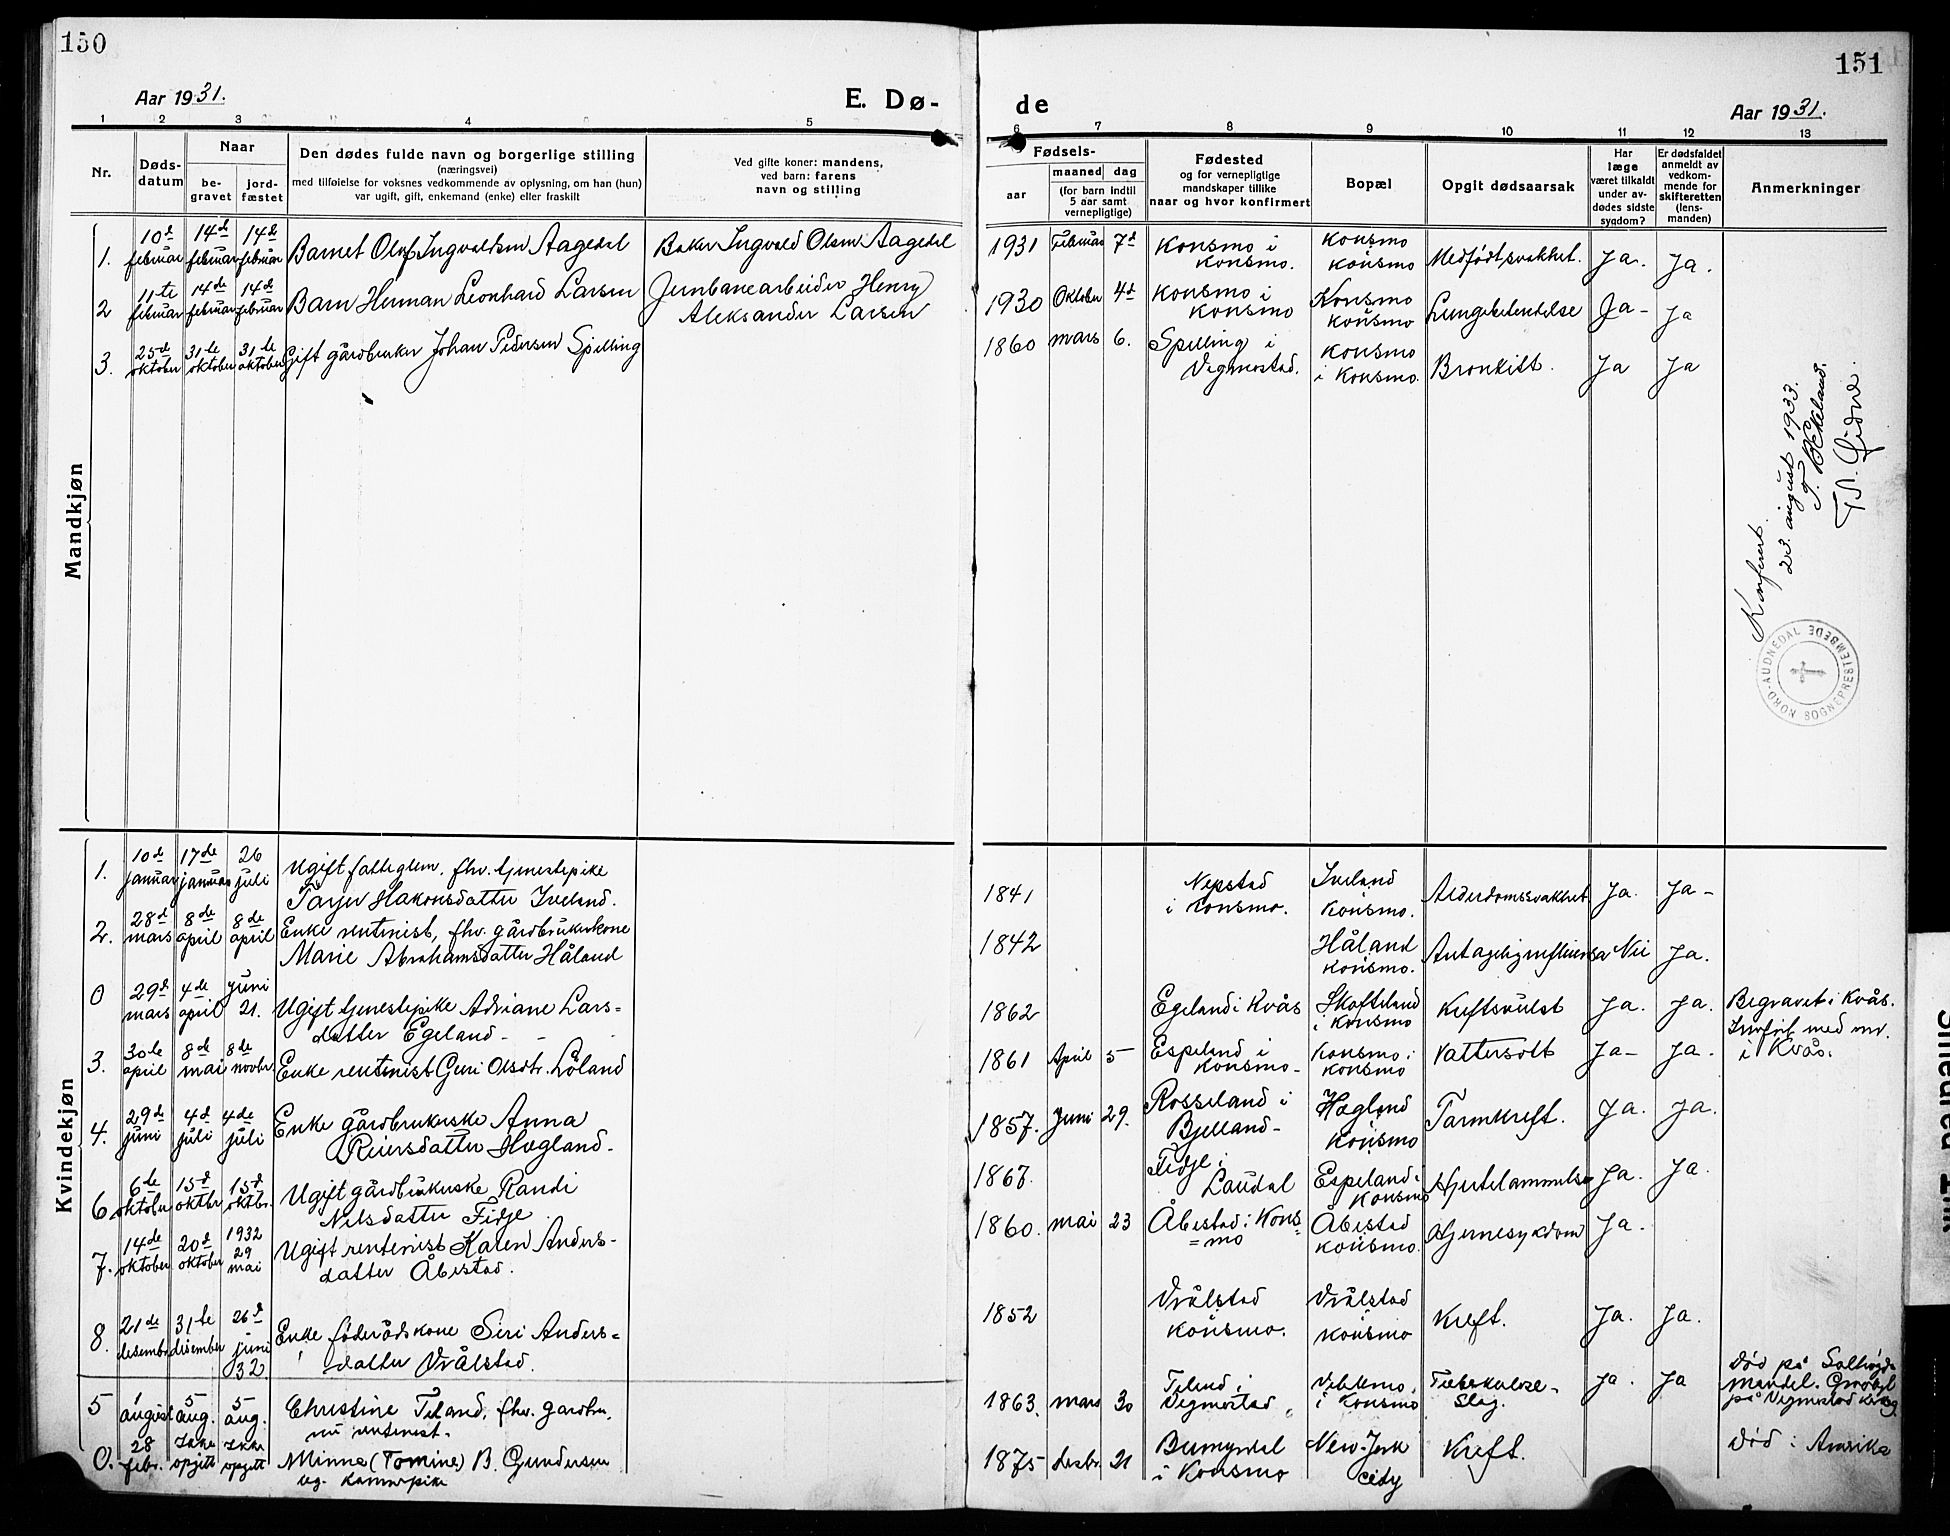 150
Aar 1931.
E. Dø-
1 2 3 4 5
Nr.
Døds-
datum
Naar
be-
gravet
jord-
fæstet
Den dødes fulde navn og borgerlige stilling
(næringsvei)
med tilføielse for voksnes vedkommende av oplysning, om han (hun)
var ugift, gift, enkemand (enke) eller fraskilt
Ved gifte koner: mandens,
ved barn: farens
navn og stilling
Mandkjøn
1. 10d februar 14d februar 14d februar Barnet Olof Ingvaldsen Aagedal Baker Ingvald Olsen Aagedal
2 11-te februar 14de februar 14d februar Barn Herman Leonhard Larsen Jernbanearbeider Henry
Aleksander Larsen
3. 25de oktober 31te oktober 31te oktober Gift gårdbruker Johan Pedersen Spilling
Kvindekjøn
1. 10de januar 17de januar 26 juli Ugift fattiglem, fhv. tjenestepike
Tarjer Hakonsdatter Iveland.
2. 28d mars 8de april 8de april Enke rentenist, fhv. gårdbrukerkone
Marie Abrahamsdatter Håland
0 29d mars 4de april juni 21. Ugift tjenestepike Adriane Lars=
datter Egeland - -
3. 30de april 8de mai 8de novbr. Enke rentenist Guri Olsdtr. Löland
4. 29de juni 4d juli 4de juli Enke gårdbrukerske Anna
Reiersdatter Hægland.
6. 6te oktober 15d oktbr 15d oktbr. Ugift gårdbrukerske Randi
Nilsdatter Fidje
7. 14de oktober 20d oktober 1932 29 mai Ugift rentenist Karen Anders-
datter Åbestad.
8. 21de desembr 31te desember 26d juni 32. Enke föderådskone Siri Anders=
datter Vrålstad.
5 1 august 5 aug. 5 aug. Christine Teland, fhv. gardbr.
nu rentenist.
0. 28 febr. Ikke opgitt Ikke opgitt Minna (Tomine) B. Gundersen
ug. kammerpike
151
de
Aar 1931.
6 7 8 9 10 11 12 13
Fødsels-
aar
maaned
dag
(for barn indtil
5 aar samt
vernepligtige)
Fødested
og for vernepligtige
mandskaper tillike
naar og hvor konfirmert
Bopæl
Opgit dødsaarsak
Har
læge
været tilkaldt
under av-
dødes sidste
sygdom?
Er dødsfaldet
anmeldt av
vedkom-
mende for
skifteretten
(lens-
manden)
Anmerkninger
1931 Februar 7d Konsmo i Konsmo. Konsmo Konsmo Medfødt svakhet. Ja. Ja.
1930 Oktober 4d Konsmo i Konsmo Konsmo Konsmo Lungebetendelse Ja- Ja
1860 mars 6. Spilling i Vegmostad. Konsmo i Konsmo. Bronkitt. Ja Ja
Konferert.
23. august 1933.
T. B. Ekeland.
T. S. Öidne.
NORD-AUDNEDAL SOGNEPRESTEMBEDE
1841 Nepstad i Konsmo. Iveland i Konsmo. Alderdomssvakhet Ja. Ja-
1842 Håland Konsmo. Antagelig influensa Nei Ja.
1862 Egeland i Kvås Skofteland i Konsmo Kreftsvulst Ja. Ja. Begravet i Kvås.
Innfört med nr.
i Kvås.
1861 April 5 Espeland i Konsmo- Konsmo i Konsmo Vattersott Ja- Ja.
1857. Juni 29. Rosseland i Bjelland- Hægland Konsmo Tarmkreft. Ja. Ja.
1867. Fidje i Laudal Espeland i Konsmo Hjertelammelse Ja. Ja.
1860. mai 23 Åbestad i Kons=mo Åbestad Konsmo. Hjernesykdom Ja.
1852 Vrålstad Konsmo. Vrålstad Konsmo Kreft. Ja. Ja.
1863. mars 30 Teland i Vegmostad Veblemo, i Konsmo Tuberkulose- Slag. Ja. Ja Död på
Mandal.
på Vegmostad
1875 desbr. 21 Bumyrdal i Konsmo New-York City Kreft. Död i Amerika